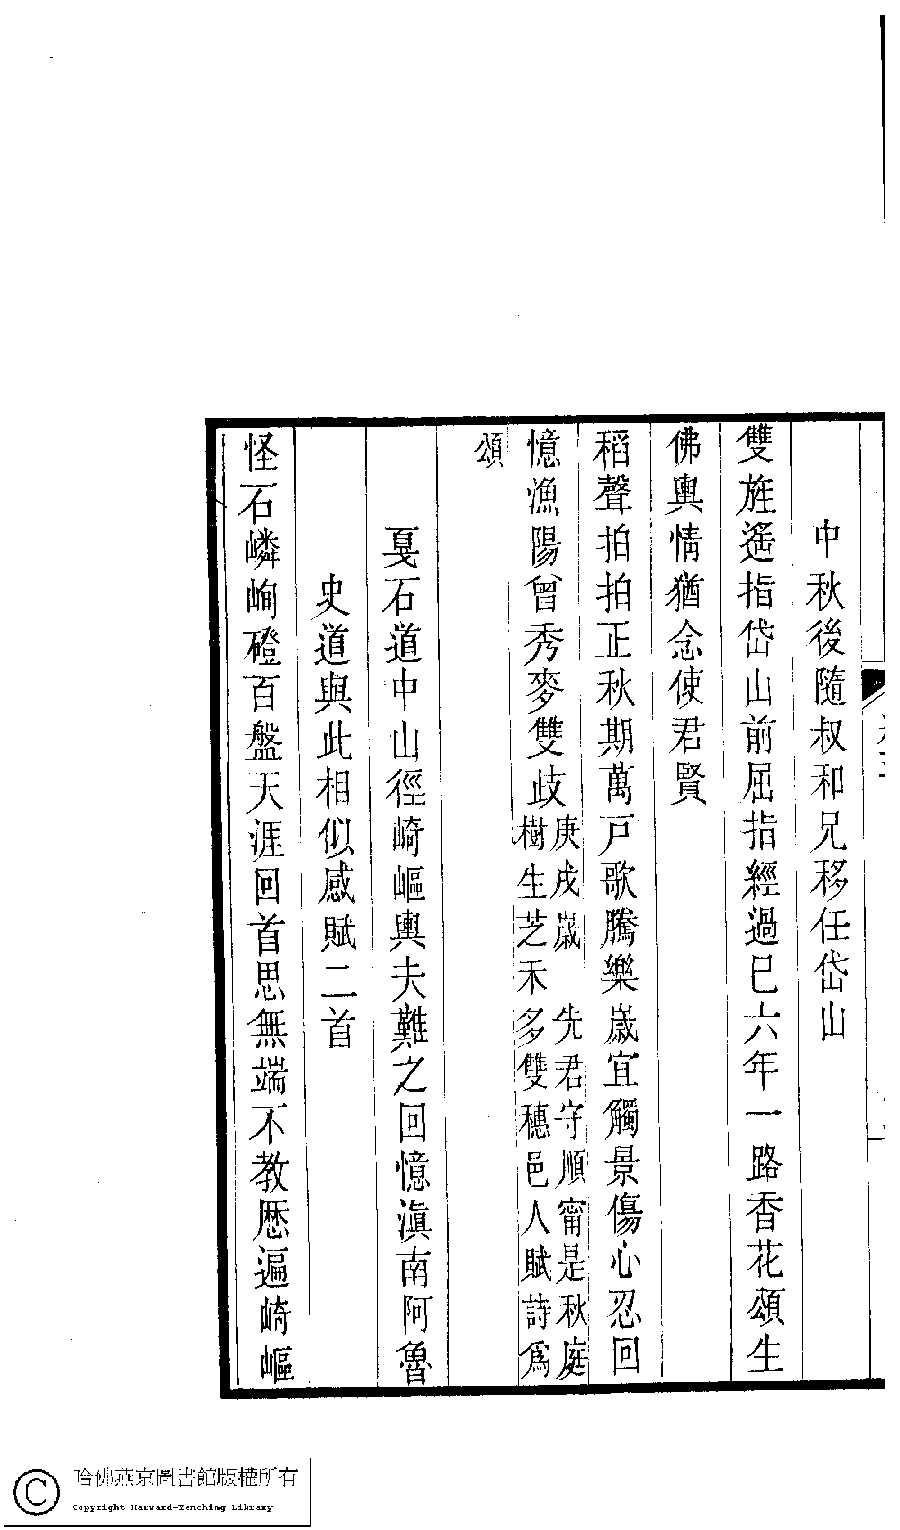 中秋後隨叔和兄移任岱山
雙旌遙指岱山前屈指經過巳六年一路香花頌生
佛輿情猶念使君賢
稻聲拍拍正秋期萬戸歌騰樂歲宜觸景傷心忍回
憶漁陽曾秀麥雙歧
庚戌歲 先君守順甯是秋庭
樹生芝禾多雙穗邑人賦詩爲
頌
戛石道中山徑崎嶇輿夫難之回憶滇南阿魯
史道與此相似感賦二首
怪石嶙峋磴百盤天涯回首思無端不教歷遍崎嶇
哈佛燕京圖書館版權所有
Copyright Harvard-Yenching Library